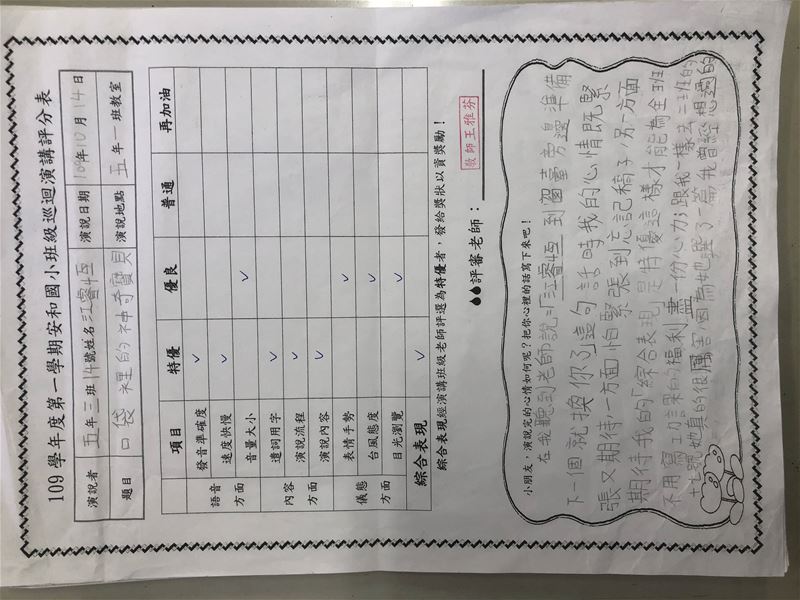 109 學年度第一學期安和國小班級巡迴演講評分表
演說者 五年三班14號姓名江睿恆 演說日期 109年10月14日
題目 口袋裡的神奇寶貝 演說地點 五年一班教室
項目 特優 優良 普通 再加油
語音方面 發音準確度 ✓
速度快慢 ✓
音量大小 ✓
內容方面 遣詞用字 ✓
演說流程 ✓
演說內容 ✓
儀態方面 表情手勢 ✓
台風態度 ✓
目光瀏覽 ✓
綜合表現 ✓
綜合表現經演講班級老師評選為特優者，發給獎狀以資獎勵！
評審老師：
教師王雅芬
小朋友，演說完的心情如何呢？把你心裡的話寫下來吧！
在我聽到老師說：「江睿恆到窗臺旁邊準備
下個就換你了」這句話時我的心情既緊
張又期待一方面怕緊張到忘記稿子，另一方面
期待我的「綜合表現」是特優這樣才能為全班
不用寫功課的福利盡一份心力；跟我一樣去三班的
號她真的很厲害因為她選了一篇我曾經想過的